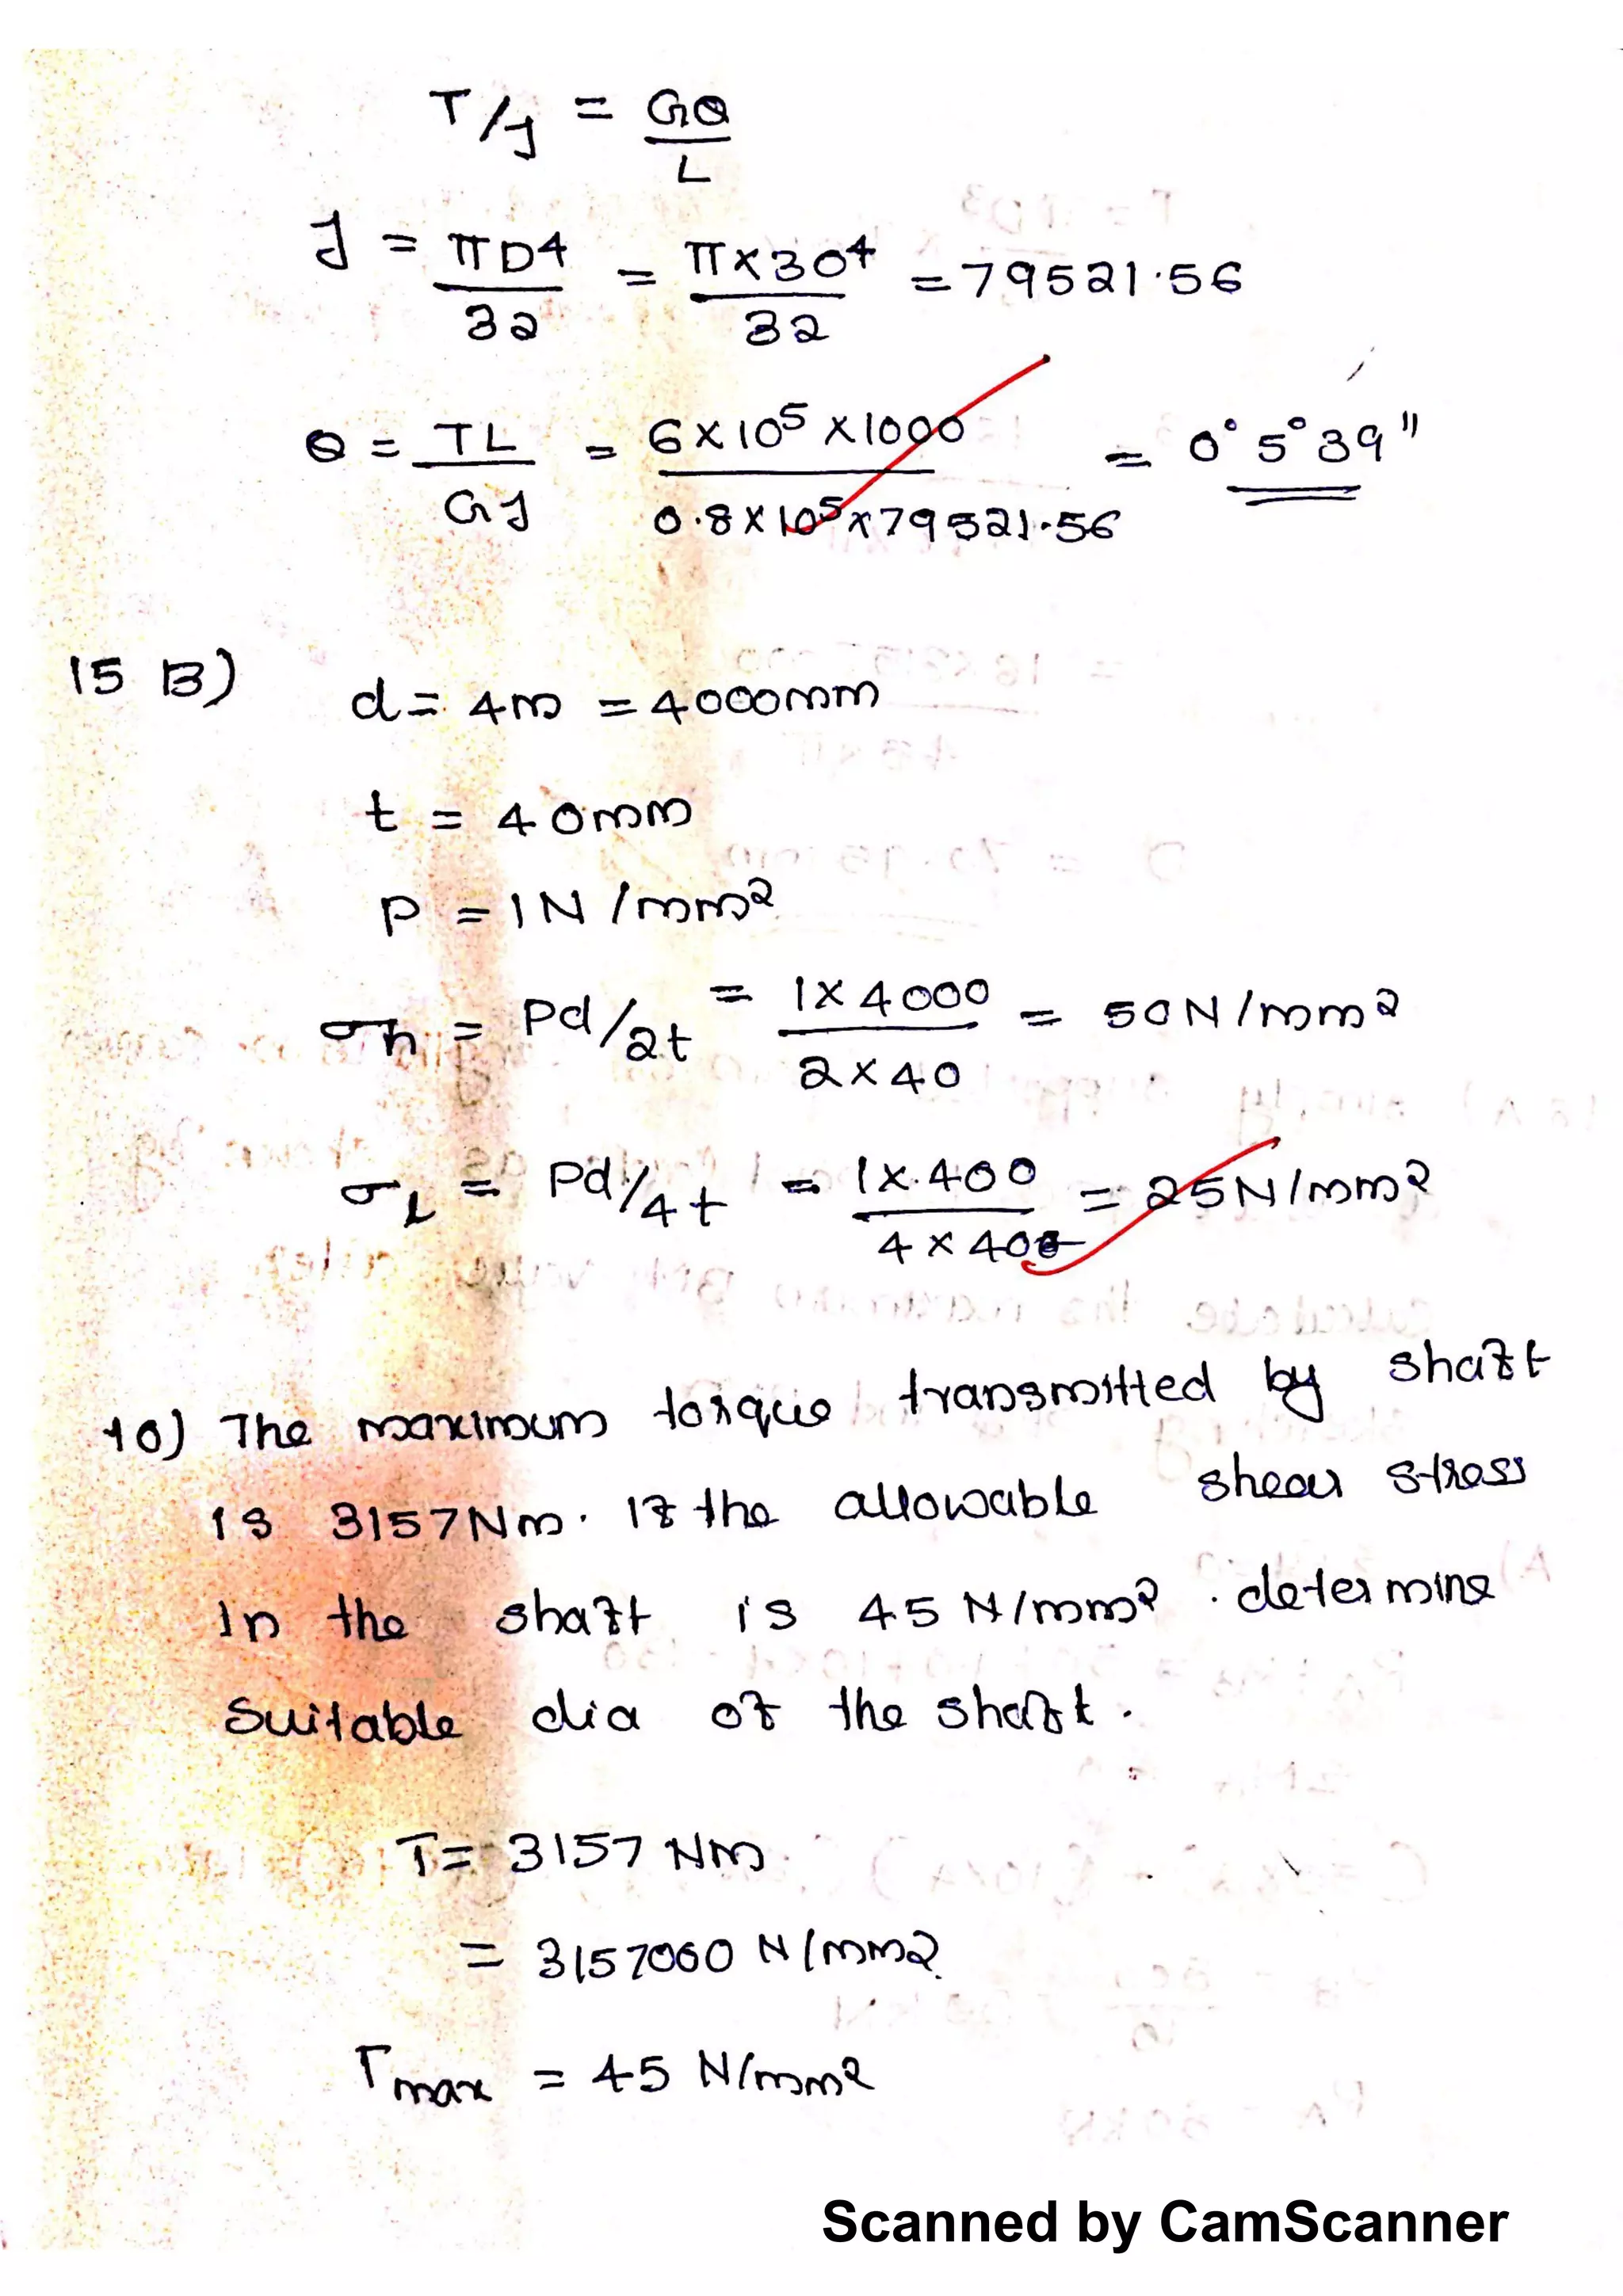 T/J = GΘ/L
J = πD4/32 = π×30⁴/32 = 79521.56
Θ = TL/GJ = 6×10⁵×1000/0.8×10⁵×79521.56 = 0° 5° 39"
15 B) d = 4m = 4000mm
t = 40mm
P = 1N/mm²
σh = Pd/2t = 1×4000/2×40 = 50N/mm²
σL = Pd/4t = 1×400/4×40 = 25N/mm²
10) The maximum torque transmitted by shaft
is 3157Nm. If the allowable shear stress
in the shaft is 45 N/mm². determine
suitable dia of the shaft.
T = 3157 Nm
= 3157000 N/mm2
Tmax = 45 N/mm²
Scanned by CamScanner